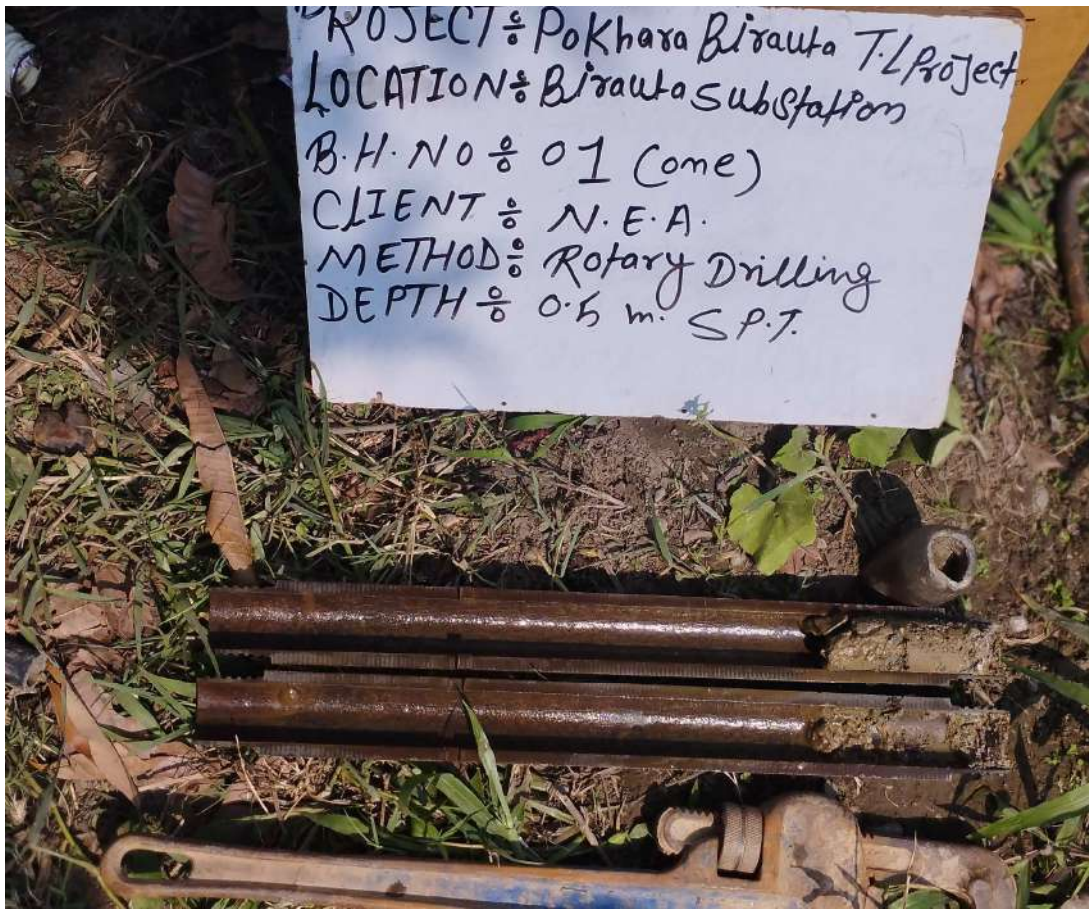 PROJECT÷ Pokhara Birauta T.L Project
LOCATION÷ Birauta Substation
B.H. NO ÷ 01 (one)
CLIENT ÷ N.E.A.
METHOD÷ Rotary Drilling
DEPTH ÷ 0.5 m. S.P.T.